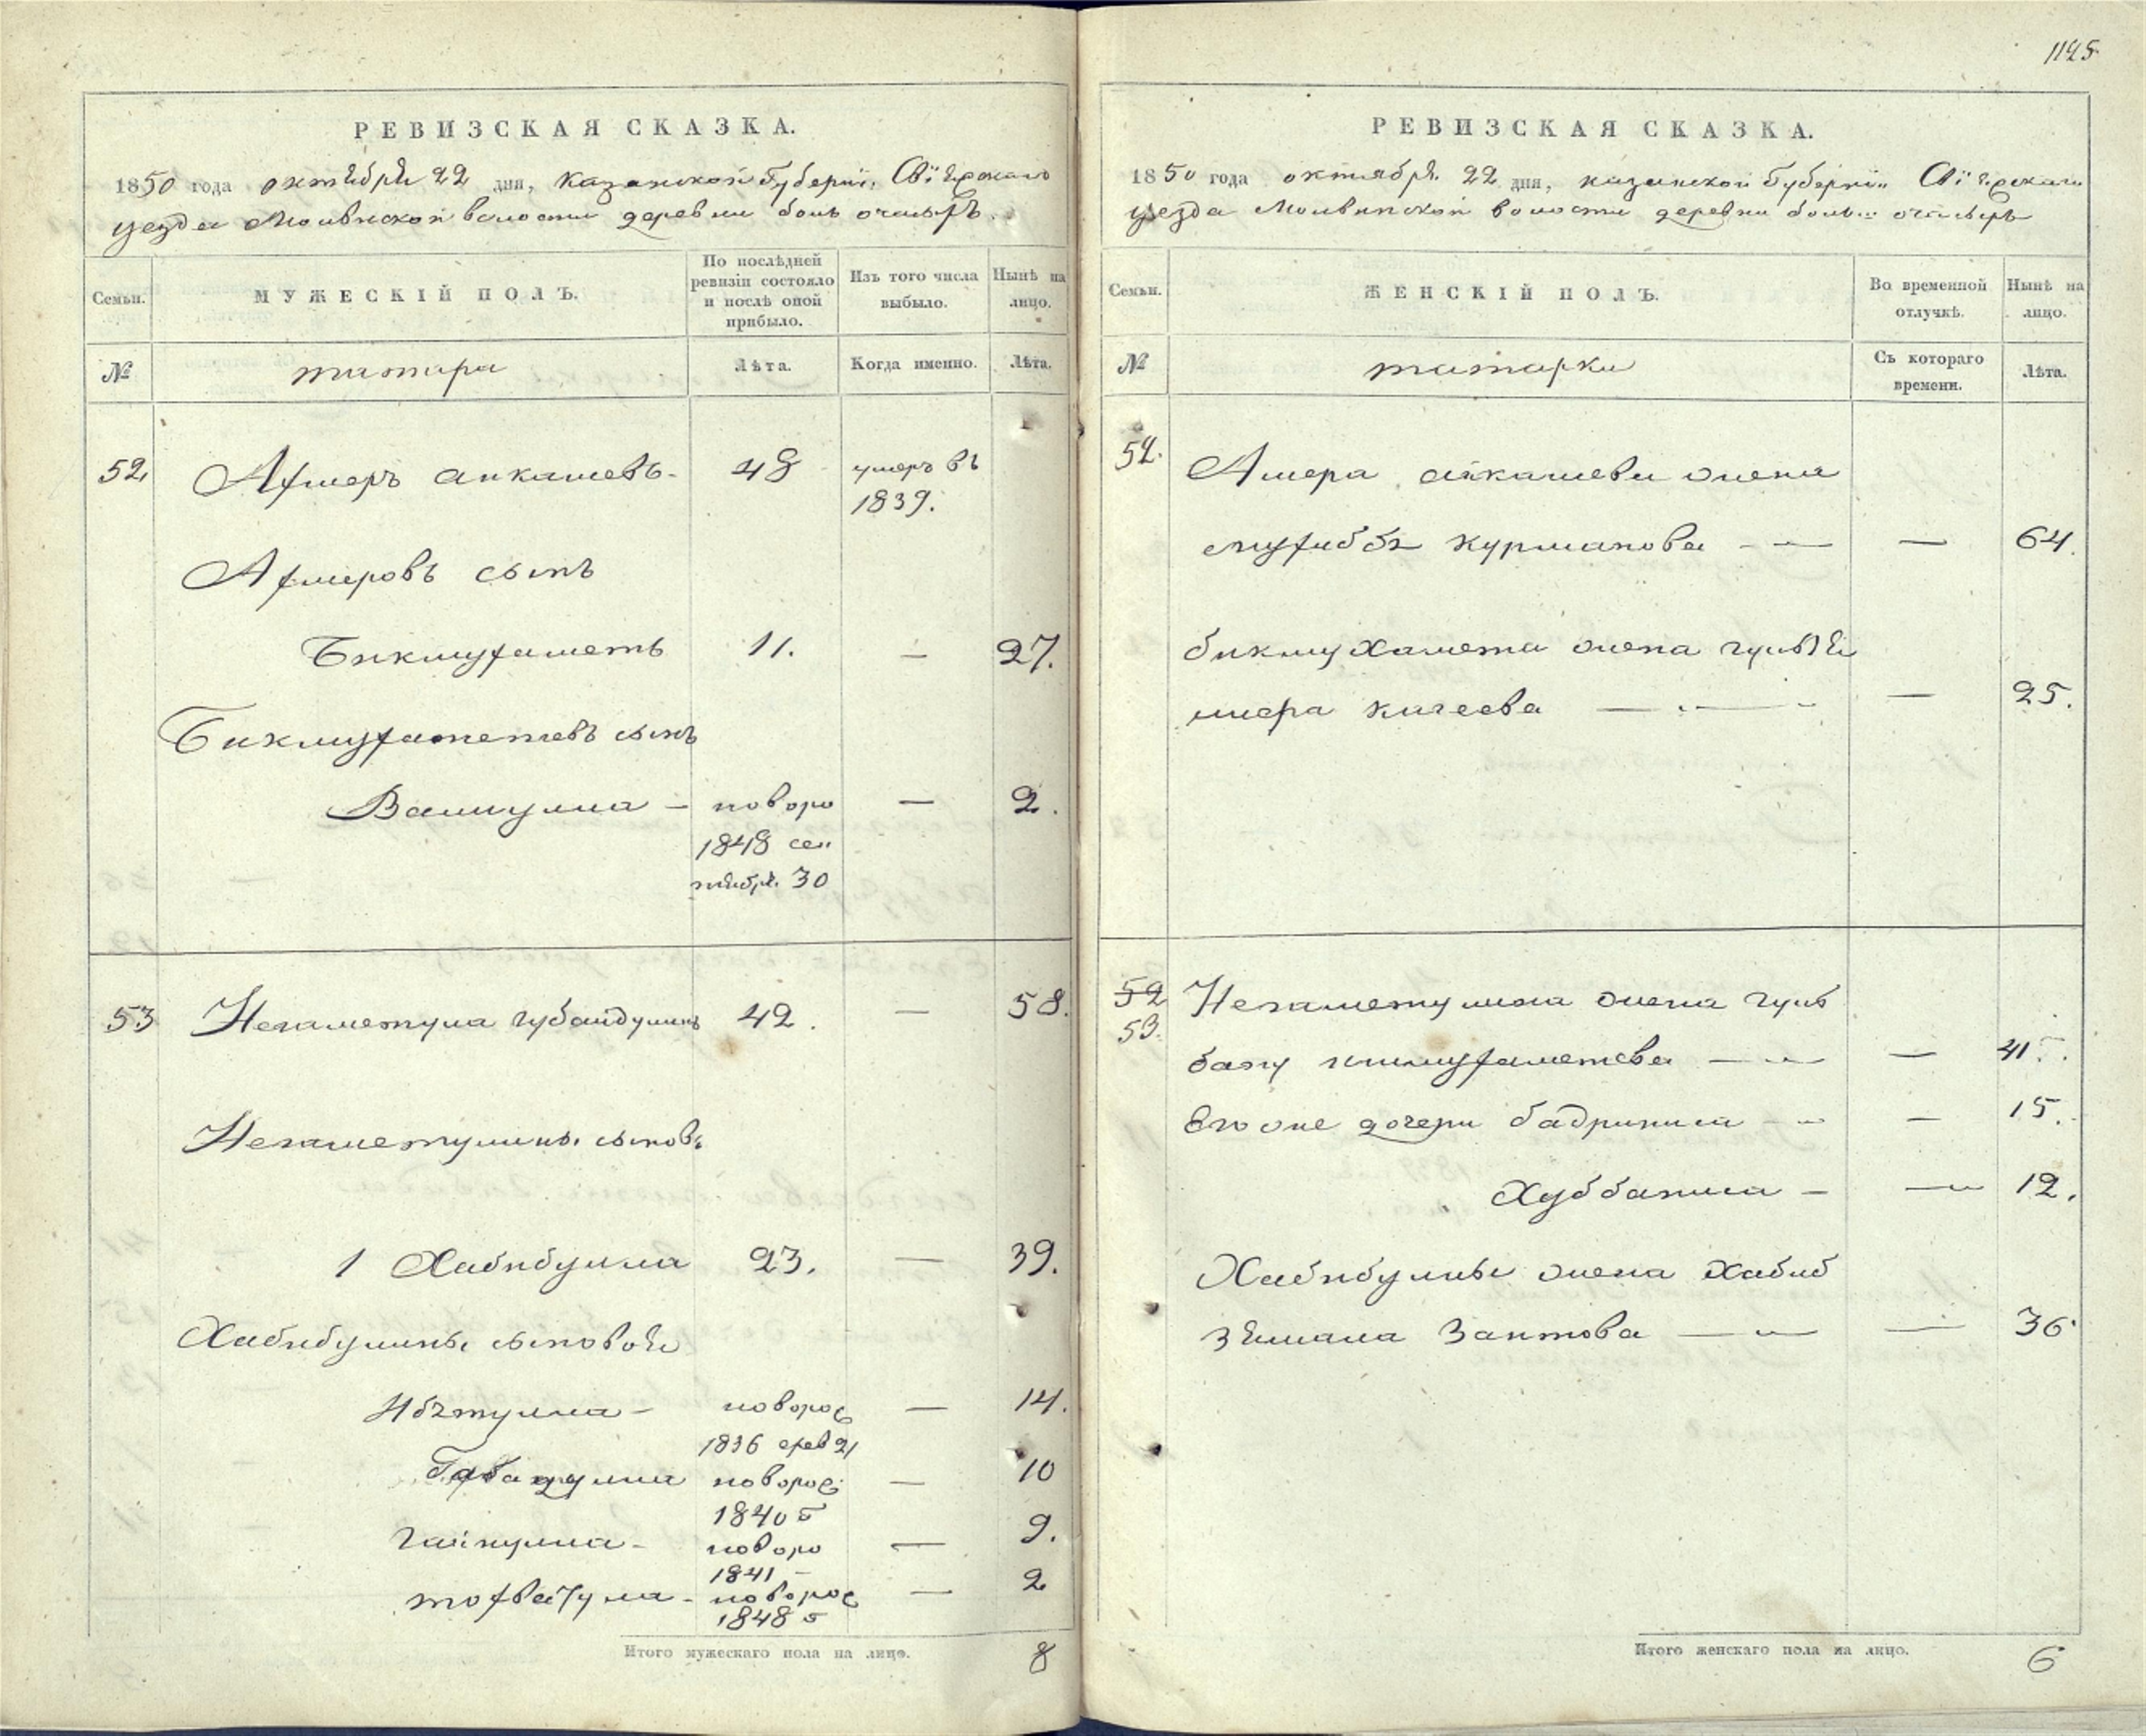 1125
РЕВИЗСКАЯ СКАЗКА.
1850 года октября 22 дня, казанской губерніи, Свіяжскаго
уезда Молвинской волости деревни боль очасыръ.
Семьи.
МУЖЕСКІЙ ПОЛЪ.
По послѣдней
ревизіи состояло
и послѣ оной
прибыло.
Изъ того числа
выбыло.
Нынѣ на
лицо.
№
татара
Лѣта.
Когда именно.
Лѣта.
52 Ахмеръ аикашевъ 48 умеръ въ
1839.
Ахмеровъ сынъ
Бикмухаметъ 11. — 27.
Бикмухаметевъ сынъ
Валиулла — новоро — 2.
1848 сен
тября 30
53 Незаметула губайдулинъ 42. — 58.
Незаметулины сыновь
1 Хабибулла 23. — 39.
Хабибулины сыновья
Ибятулла — новорос — 14.
1836 фев 21
Габадулла новорос — 10
1840
Гайнулла — новоро — 9.
1841
тохватула — новорос — 2
1848
Итого мужескаго пола на лицо. 8
РЕВИЗСКАЯ СКАЗКА.
1850 года октября 22 дня, казанской губерніи Свіяжскаго
уезда Молвинской волости деревни боль очасыръ
Семьи.
ЖЕНСКІЙ ПОЛЪ.
Во временной
отлучкѣ.
Нынѣ на
лицо.
№
татарки
Съ котораго
времени.
Лѣта.
52. Амера аикашева жена
мухиббя курманова — — 64.
бикмухамета жена гульзя
мера кичеева — — 25.
52 Незаметулина жена гуль
53. бану ишмухаметева — — 41.
Его же дочери бадрниса — — 15.
Хуббаниса — — 12.
Хабибулины жена хабиб
зямала Заитова — — 36
Итого женскаго пола на лицо. 6